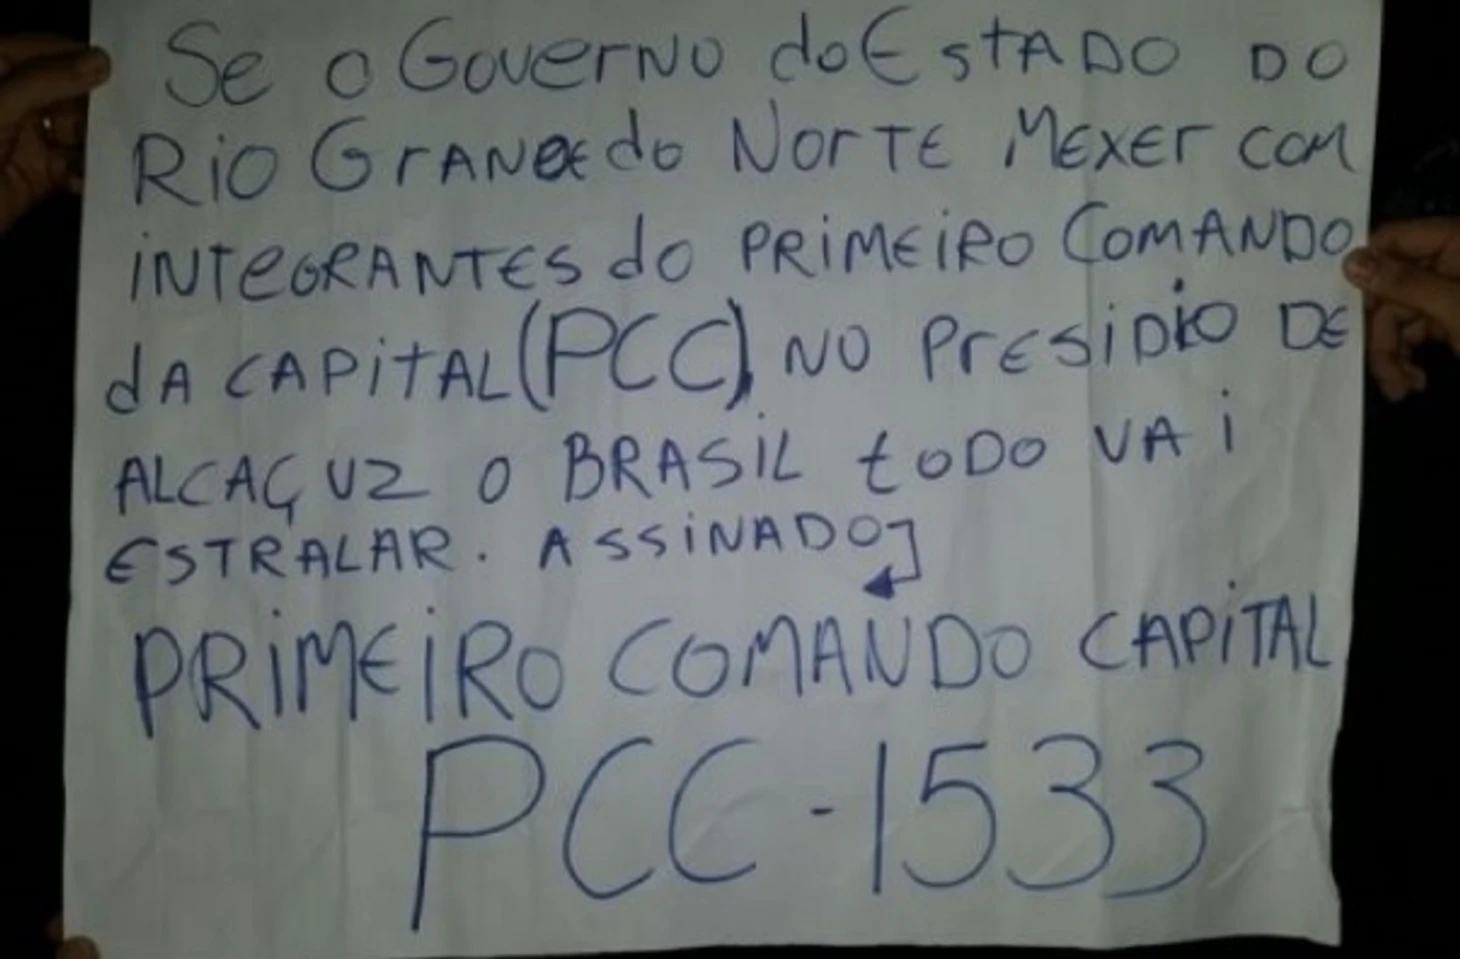 Se o GOVERNO do ESTADO DO
RIO GRANDE do NORTE MEXER COM
INTEGRANTES do PRIMEIRO COMANDO
dA CAPITAL (PCC) NO PRESIDIO DE
ALCAÇUZ O BRASIL tODO VAI
ESTRALAR. ASSINADO
PRIMEIRO COMANDO CAPITAL
PCC-1533